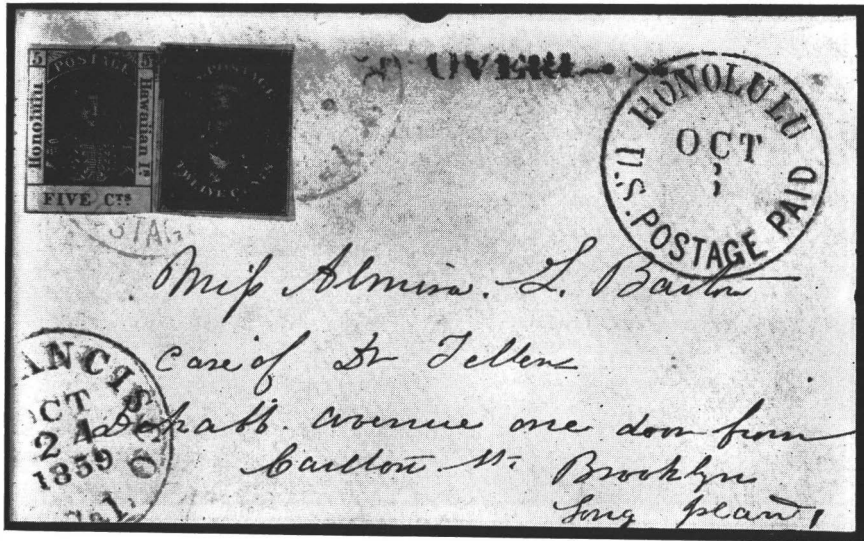 5 POSTAGE 5
Honolulu
Hawaiian Iˢ.
FIVE Cᵀˢ
POSTAGE
TWELVE CENTS
OVERL
HONOLULU
OCT
U.S. POSTAGE PAID
STAG
Miss Almira. L. Barton
care of Dr Tellers
avenue one door from
Carlton St. Brooklyn
Long
ANCISCO
OCT
24
1859
Cal.